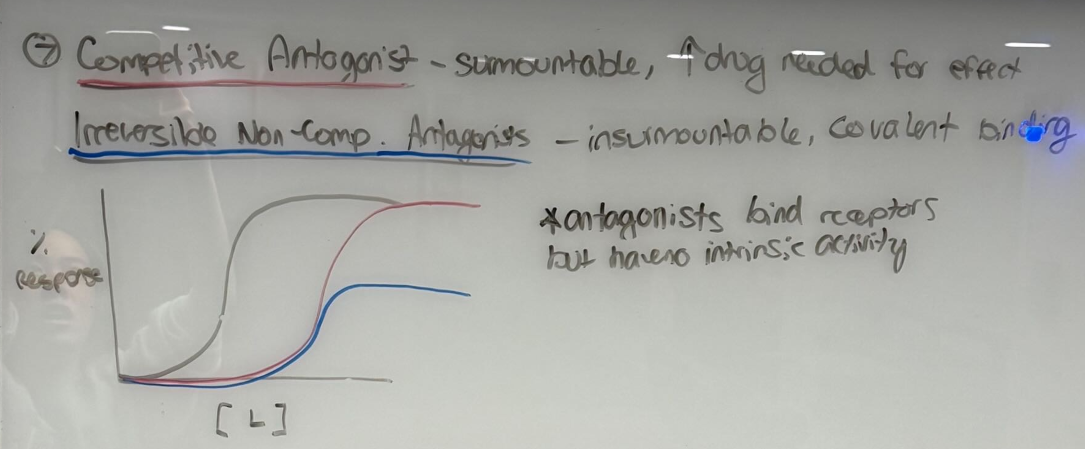 → Competitive Antagonist - sumountable, ↑ drug needed for effect
Irreversible Non-Comp. Antagonists - insurmountable, covalent binding
*antagonists bind receptors
but have no intrinsic activity
%
Response
[L]